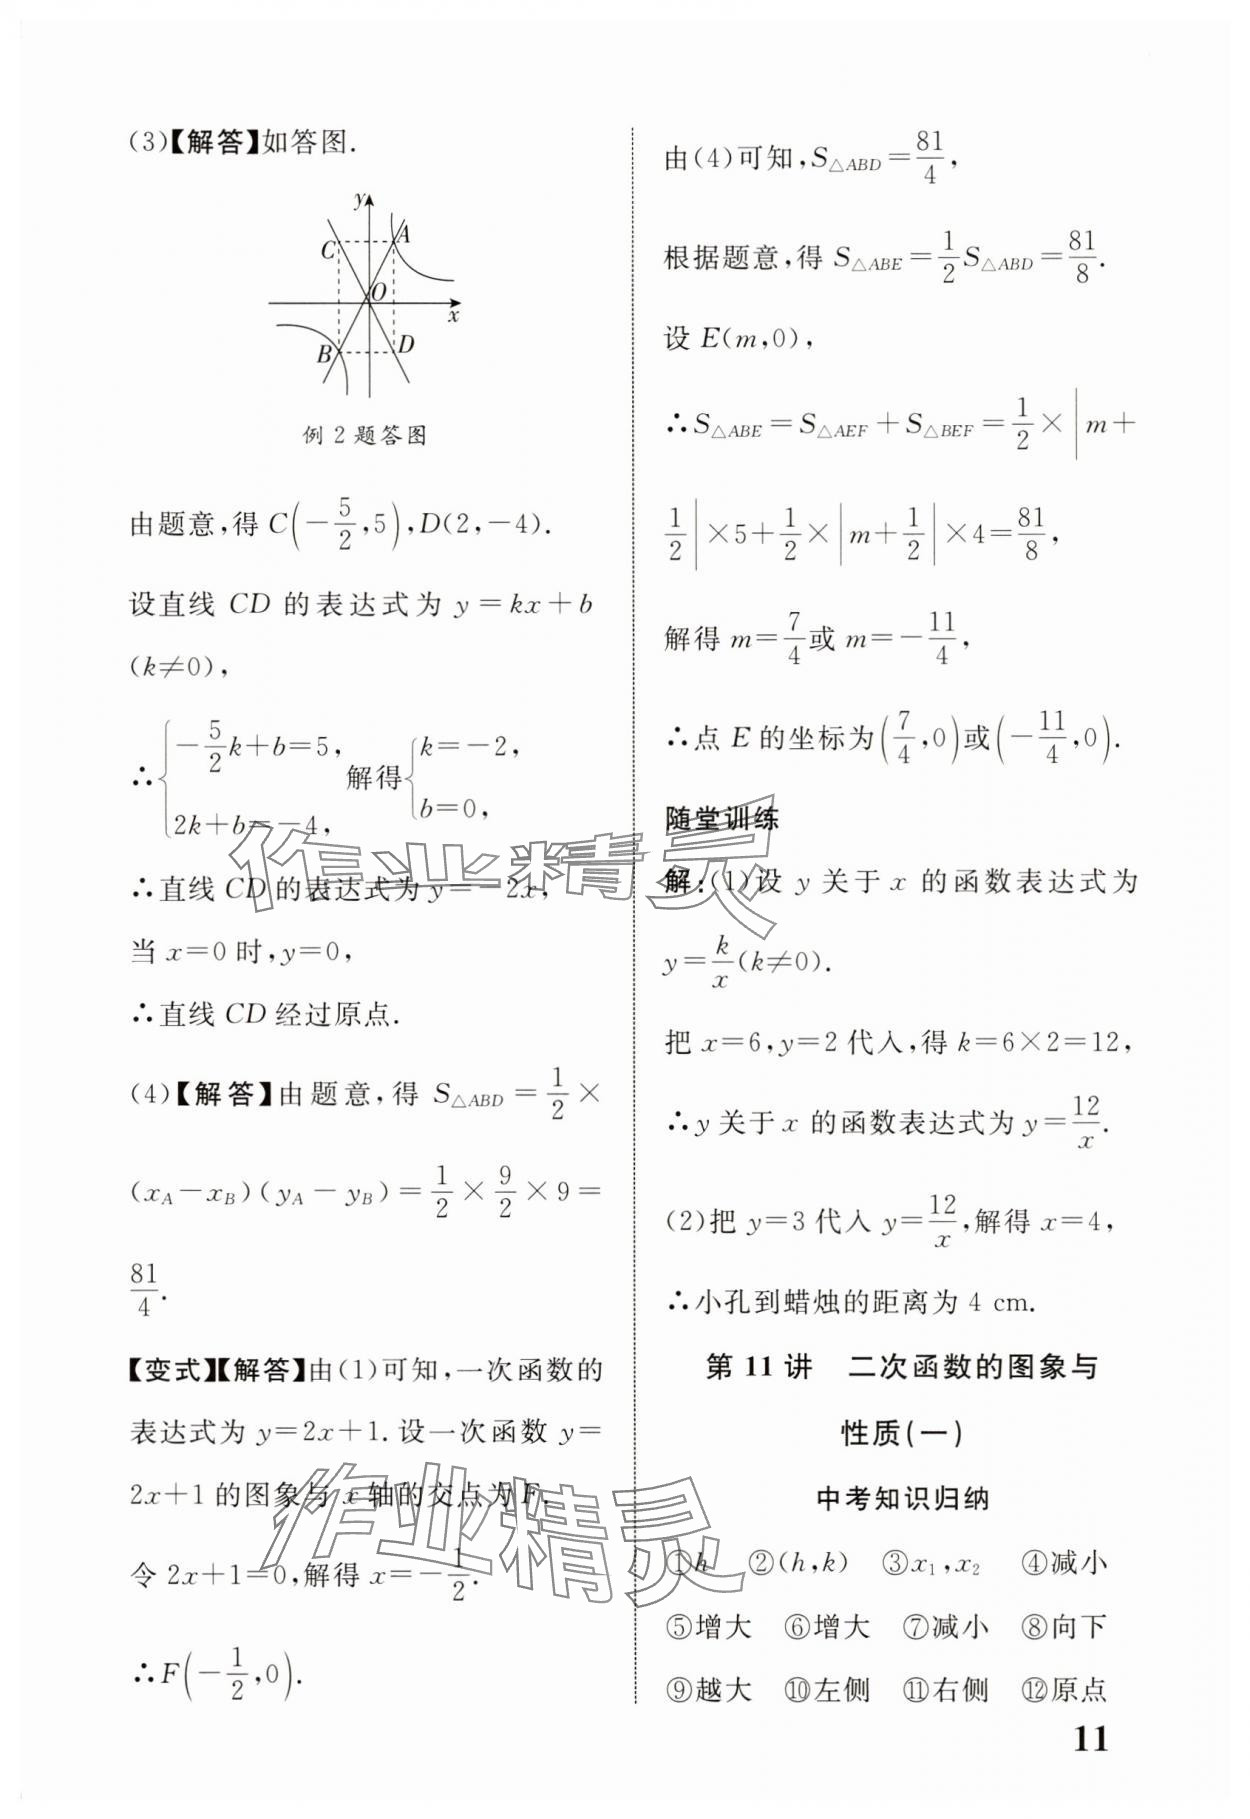 (3)【解答】如答图.
y
C
A
O
x
B
D
例 2 题答图
由题意,得 C(-5/2,5),D(2,-4).
设直线 CD 的表达式为 y=kx+b
(k≠0),
∴{-5/2k+b=5, 2k+b=-4, 解得{k=-2, b=0,
∴直线 CD 的表达式为 y=-2x,
当 x=0 时,y=0,
∴直线 CD 经过原点.
(4)【解答】由题意,得 S△ABD=1/2×
(xA-xB)(yA-yB)=1/2×9/2×9=
81/4.
【变式】【解答】由(1)可知,一次函数的
表达式为 y=2x+1. 设一次函数 y=
2x+1 的图象与 x 轴的交点为 F.
令 2x+1=0,解得 x=-1/2.
∴F(-1/2,0).
由(4)可知,S△ABD=81/4,
根据题意,得 S△ABE=1/2S△ABD=81/8.
设 E(m,0),
∴S△ABE=S△AEF+S△BEF=1/2×|m+
1/2|×5+1/2×|m+1/2|×4=81/8,
解得 m=7/4或 m=-11/4,
∴点 E 的坐标为(7/4,0)或(-11/4,0).
随堂训练
解:(1)设 y 关于 x 的函数表达式为
y=k/x(k≠0).
把 x=6,y=2 代入,得 k=6×2=12,
∴y 关于 x 的函数表达式为 y=12/x.
(2)把 y=3 代入 y=12/x,解得 x=4,
∴小孔到蜡烛的距离为 4 cm.
第 11 讲 二次函数的图象与
性质(一)
中考知识归纳
①h ②(h,k) ③x₁,x₂ ④减小
⑤增大 ⑥增大 ⑦减小 ⑧向下
⑨越大 ⑩左侧 ⑪右侧 ⑫原点
11
作业精灵
作业精灵